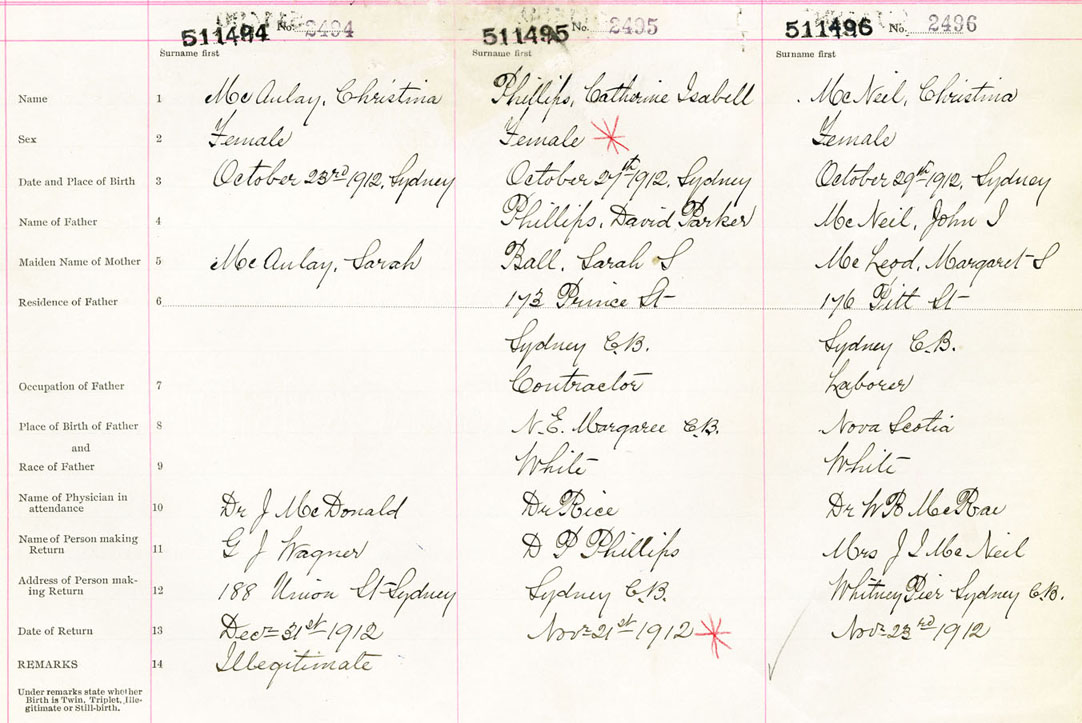 511494 No. 2494 511495 No. 2495 511496 No. 2496
Surname first Surname first Surname first
Name 1 McAulay, Christina Phillips, Catherine Isabell McNeil, Christina
Sex 2 Female Female Female
Date and Place of Birth 3 October 23rd 1912, Sydney October 27th 1912, Sydney October 29th 1912, Sydney
Name of Father 4 Phillips, David Parker McNeil, John J
Maiden Name of Mother 5 McAulay, Sarah Ball, Sarah S McLeod, Margaret S
Residence of Father 6 173 Prince St 176 Pitt St
Sydney C.B. Sydney C.B.
Occupation of Father 7 Contractor Laborer
Place of Birth of Father 8 N.E. Margaree C.B. Nova Scotia
and
Race of Father 9 White White
Name of Physician in
attendance 10 Dr J McDonald Dr Rice Dr W R McRae
Name of Person making
Return 11 G J Wagner D P Phillips Mrs J J McNeil
Address of Person mak-
ing Return 12 188 Union St Sydney Sydney C.B. Whitney Pier Sydney C.B.
Date of Return 13 Decr 31st 1912 Novr 21st 1912 Novr 23rd 1912
REMARKS 14 Illegitimate
Under remarks state whether
Birth is Twin, Triplet, Ille-
gitimate or Still-birth.